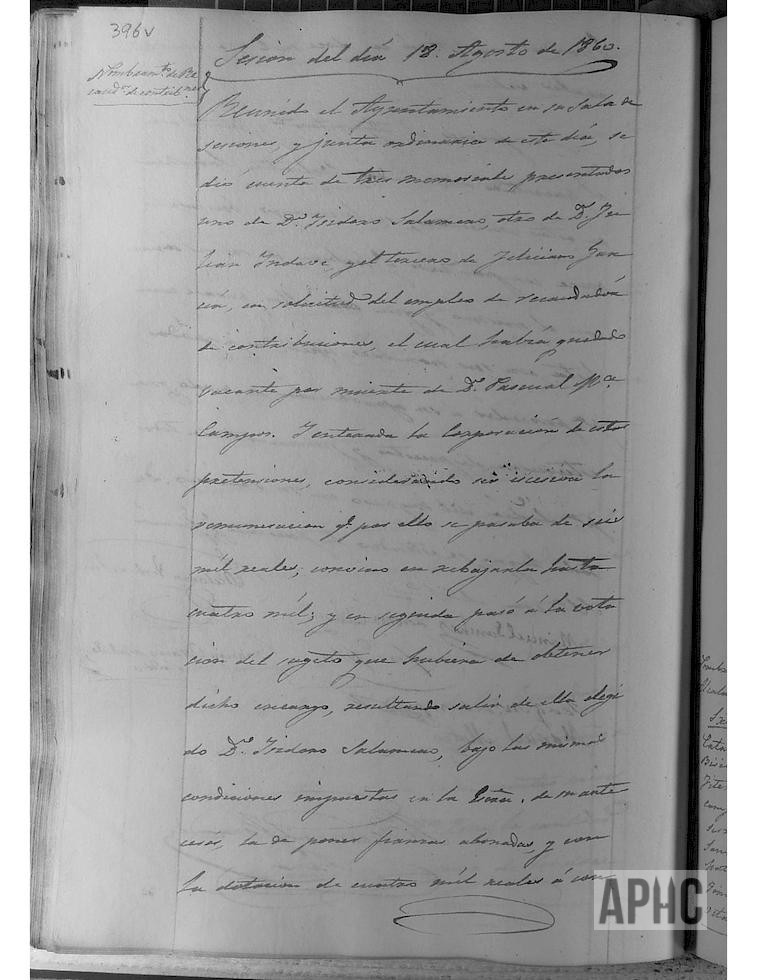 396v
Sesion del dia 18. Agosto de 1860.
Nombram.to de Re
caud.r de contrib.nes
Reunido el Ayuntamiento en su Sala de
sesiones, y junta ordinaria de este dia, se
dió cuenta de tres memoriales presentados
uno de D.n Isidoro Salamero, otro de D.n Ju
lian Indave, y el tercero de Feliciano Gar
cia, en solicitud del empleo de recaudador
de contribuciones, el cual habia quedado
vacante por muerte de D.n Pascual M.a
Campos. Y enterada la Corporacion de estas
pretensiones, considerando ser escesiva la
remuneracion q.e por ello se pasaba de seis
mil reales, convino en rebajarla hasta
cuatro mil; y en seguida pasó á la vota
cion del sugeto que hubiera de obtener
dicho encargo, resultando salir de ella elegi
do D.n Isidoro Salamero, bajo las mismas
condiciones impuestas en la de mante
cesor, la de poner fianzas abonadas, y con
la dotacion de cuatro mil reales á con
APHC